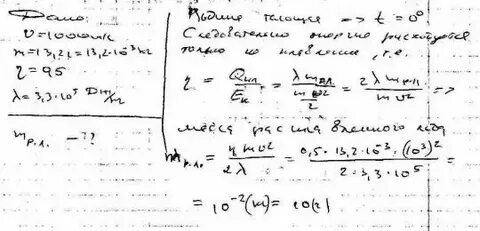 Дано:
υ=1000 м/с
m=13,2 г=13,2·10⁻³ кг
η=0,5
λ=3,3·10⁵ Дж/кг
m р.л. —?
Льдине тающее => t=0°
Следовательно энергия расходуется
только на плавление, т.е.
η = Qпл / Eк = λ m р.л. / (m υ² / 2) = 2 λ m р.л. / m υ² =>
масса расплавленного льда
m р.л. = η m υ² / 2 λ = 0,5·13,2·10⁻³·(10³)² / 2·3,3·10⁵ =
= 10⁻² (кг) = 10 (г)